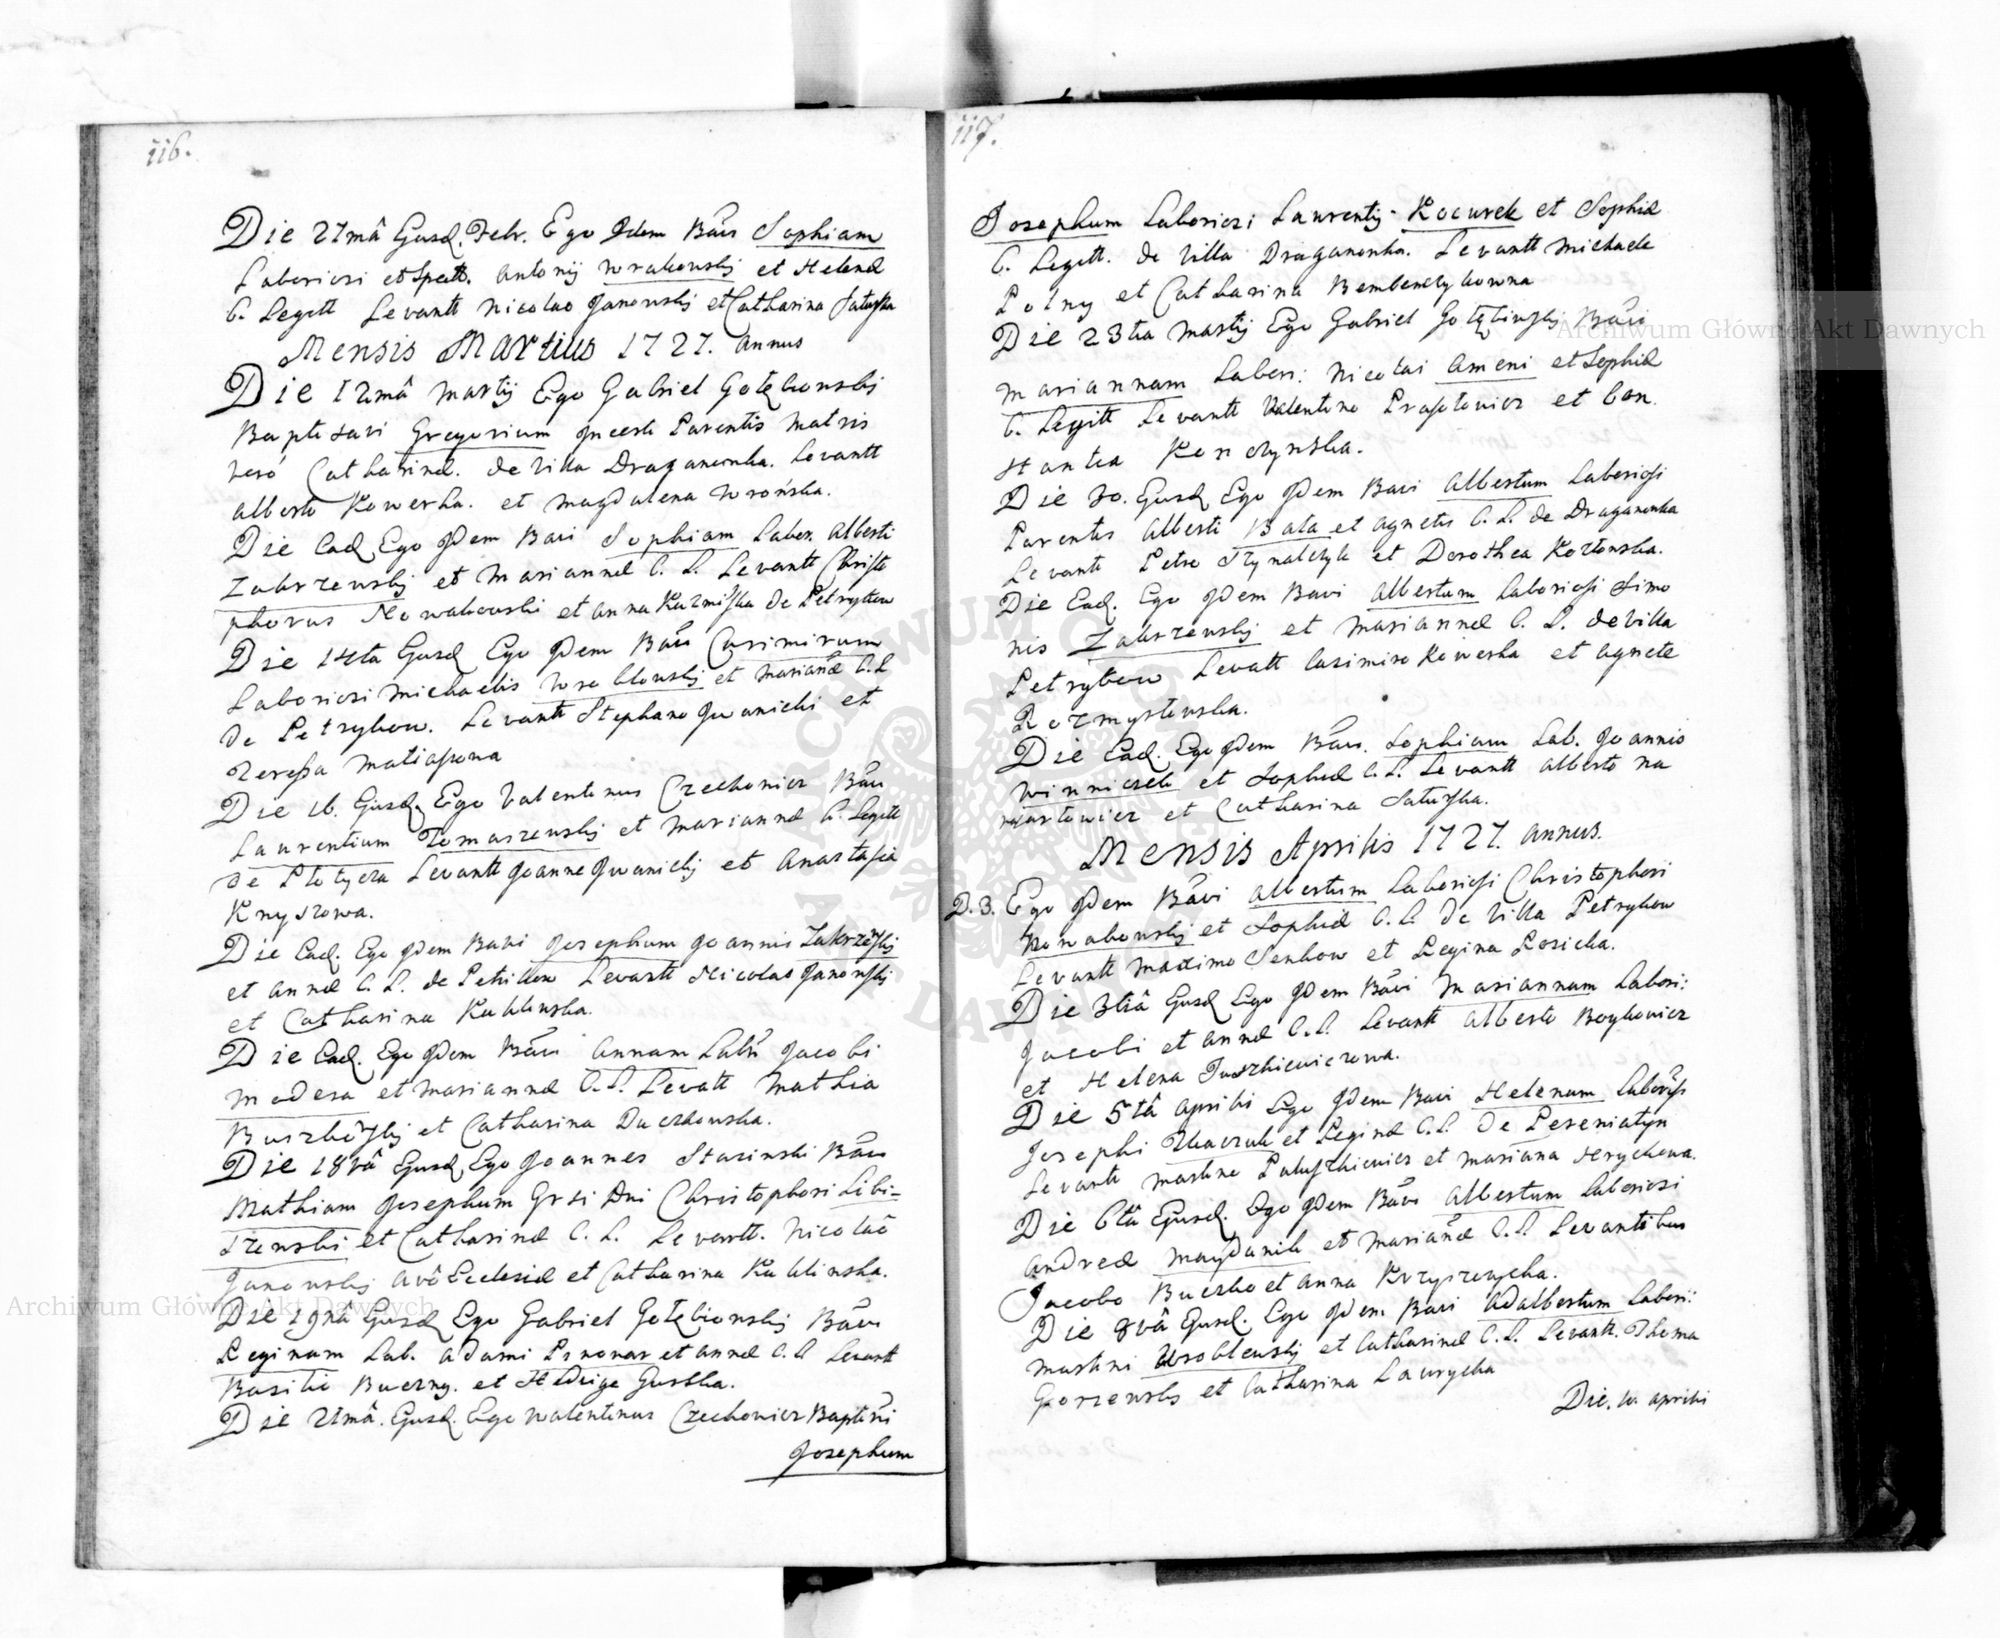 116.
Die 21mâ Eiusd. Febr. Ego Idem Bavi Sophiam
Laboriosi et Spett. Antonij Wrakowskij et Helenæ
C. Legitt Levantt Nicolao Janowskij et Catharina
Mensis Martius 1727. Annus
Die 12mâ Martij Ego Gabriel Gołębiowskij
Baptisavi Gregorium Incerti Parentis Matris
vero Catharinæ. de Villa Draganowka. Levantt
Alberto Kowerka. et Magdalena Wrońska.
Die Ead. Ego Idem Bavi Sophiam Labor. Alberti
Zakrzewskij et Mariannæ C. L. Levantt Christo
phorus Nowakowski et Anna de Petrykow
Die 14ta Eiusd Ego Idem Bavi Casimirum
Laboriosi Michaelis Wroblowskij et Marianæ C. L
de Petrykow. Levantt Stephano Jwanicki et
Teressa Matiasowa
Die 16. Eiusd. Ego Valentinus Czechowicz Bavi
Laurentium Tomaszewskij et Mariannæ C. Legitt
de Płotycza Levantt Joanne Jwanickij et Anastasia
Knyszowa.
Die Ead. Ego Idem Bavi Josephum Joannis Zakrzewskij
et Annæ C. L. de Levantt Nicolao Janowskij
et Catharina Kublinska.
Die Ead. Ego Idem Bavi Annam Jacobi
Modera et Mariannæ C. L. Levatt Mathia
et Catharina Daczkowska.
Die 18vâ Eiusd. Ego Joannes Stasinski Bavi
Mathiam Josephum Grsi Dni Christophori Libi=
szewski et Catharinæ C. L. Levantt. Nicolaô
Janowskij Avô Ecclesiæ et Catharina Kublinska.
Die 19nâ Eiusd Ego Gabriel Gołębiowskij Bavi
Reginam Lab. Adami et Annæ C. L Levantt
Basilio Buczny. et Hedvige Gurska.
Die 21mâ. Eiusd. Ego Walentinus Czechowicz Baptavi
Josephum
117.
Josephum Laboriosi Laurentij Kocurek et Sophiæ
C. Legitt. de Villa Draganowka. Levantt Michaele
Polny et Catharina
Die 23tia Martij Ego Gabriel Bavi
Mariannam Labori: Nicolai Ameni et Sophiæ
C. Legitt Levantt Valentino et Con
stantia
Die 30. Eiusd Ego Idem Bavi Albertum Laboriosi
Parentis Alberti Bata et Agnetis C. L. de Draganowka
Levantt Petro et Dorothea Kozłowska.
Die Ead. Ego Idem Bavi Albertum Laboriosi Simo
nis Zakrzewskij et Mariannæ C. L. de Villa
Petrykow Levatt Casimiro Kowerka et Agnete
Rozmysłowska.
Die Ead. Ego Idem Bavi. Sophiam Lab. Joannis
Winniczek et Sophiæ C. L. Levantt Alberto Na
wartowicz et Catharina
Mensis Aprilis 1727. Annus.
D. 3. Ego Idem Bavi Albertum Laboriosi Christophori
Nowakowskij et Sophiæ C. L. de Villa Petrykow
Levantt Maximo Senkow et Regina Rosicka.
Die 3tiâ Eiusd Ego Idem Bavi Mariannam Labori:
Jacobi et Annæ C. L. Levantt Alberto Boykowicz
et Helena
Die 5tâ Aprilis Ego Idem Bavi Helenam Laboriosi
Josephi Tkaczuk et Reginæ C. L. de
Levantt Martino et Mariana Hrychowa.
Die 6tâ Eiusd. Ego Idem Bavi Albertum Laboriosi
Andreæ Maydanik et Marianæ C. L. Levantibus
Jacobo Buczko et Anna
Die 8vâ Eiusd. Ego Idem Bavi Adalbertum Labori:
Martini Wroblewskij et Catharinæ C. L. Levantt. Thoma
Gorzewskij et Catharina
Die. 10. Aprilis
Archiwum Główne Akt Dawnych
Archiwum Główne Akt Dawnych
ARCHIWUM GŁÓWNE AKT DAWNYCH